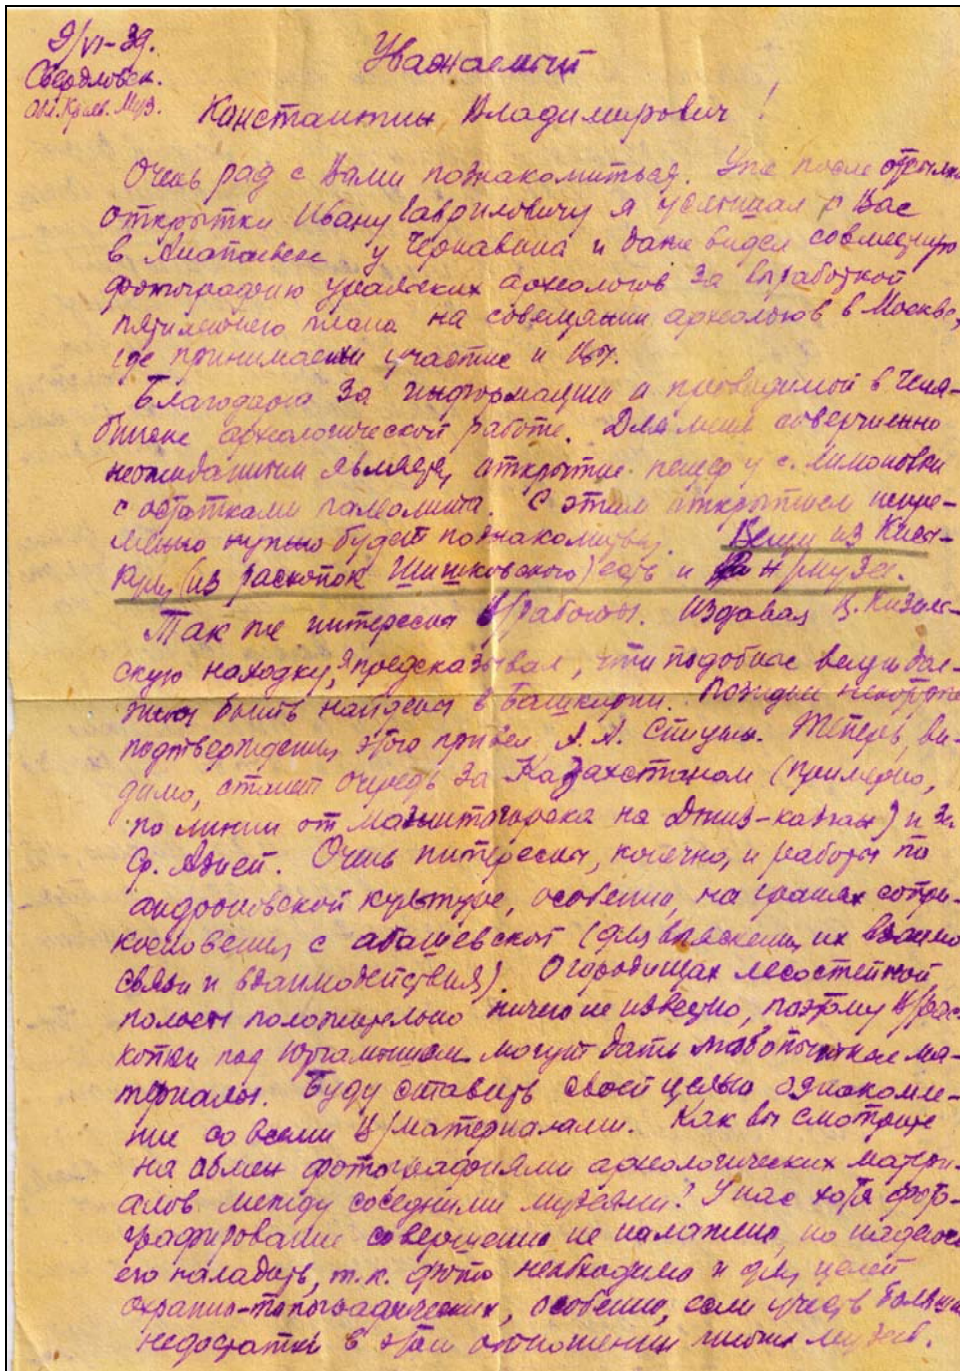 9/VI-39.
Свердловск.
Обл. Краев. Муз.
Уважаемый
Константин Владимирович!
Очень рад с Вами познакомиться. Уже после отсылки
открытки Ивану Гавриловичу я услышал о Вас
в Алапаевске у Чернавина и даже видел совместную
фотографию уральских археологов за выработкой
пятилетнего плана на совещании археологов в Москве,
где принимаете участие и Вы.
Благодарю за информацию о проводимой в Челя-
бинске археологической работе. Для меня совершенно
неожиданным является открытие пещер у с.
с остатками палеолита. С этим открытием непре-
менно нужно будет познакомиться. Вещи из Кыса-
куля (из раскопок Шишковского) есть и
Так же интересны В/работы. Издавая В. Кизиль-
скую находку, я предсказывал, что подобные вещи дол-
жны быть найдены в Башкирии. Позднее некоторые
подтверждения этого привел А. А. Спицын. Теперь, ви-
димо, станет очередь за Казахстаном (примерно,
по линии от Магнитогорска на Джез-казган) и за
Ср. Азией. Очень интересны, конечно, и работы по
андроновской культуре, особенно, на гранях сопри-
косновения с абашевской (для выяснения их взаимо
связи и взаимодействия). О городищах лесостепной
полосы положительно ничего не известно, поэтому В/рас-
копки под Юргамышем могут дать любопытные ма-
териалы. Буду ставить своей целью ознакомле-
ние со всеми В/материалами. Как вы смотрите
на обмен фотографиями археологических матери-
алов между соседними музеями? У нас хотя фото-
графирование совершенно не налажено, но надеюсь
его наладить, т.к. фото необходимо и для целей
охранно-топографических, особенно, если учесть большие
недостатки в этом отношении музеев.